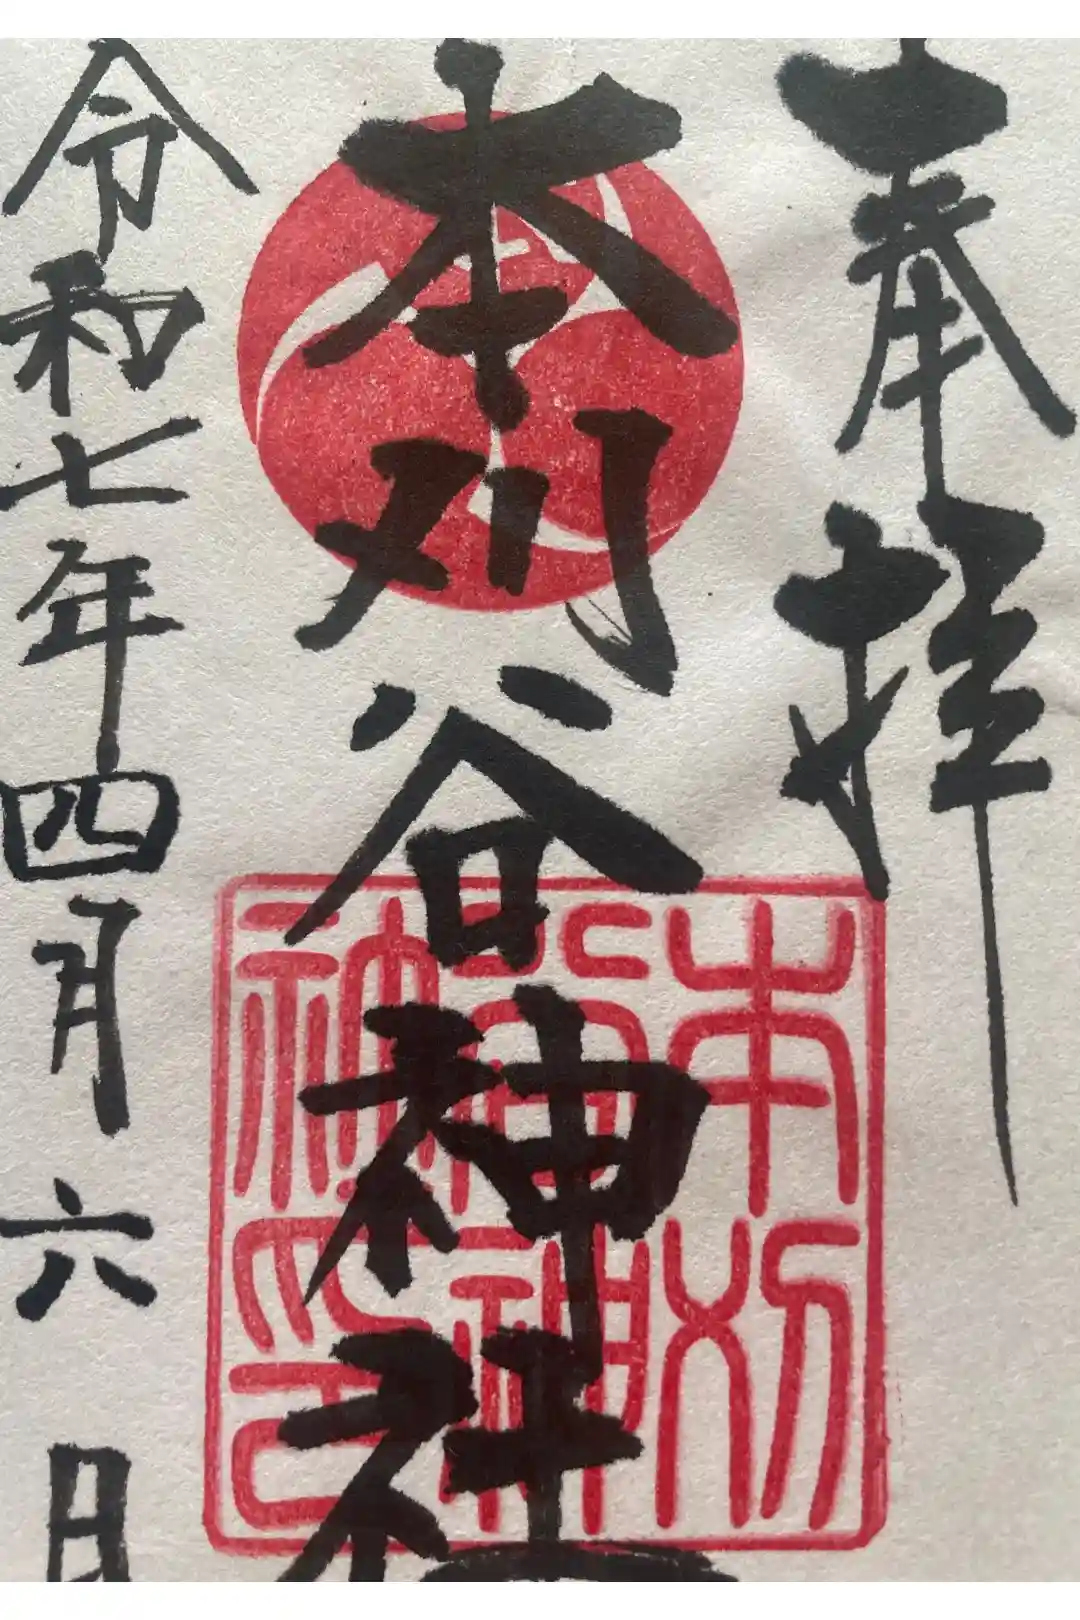 奉拝
本刈谷神社
令和七年四月六日
本刈谷神社印